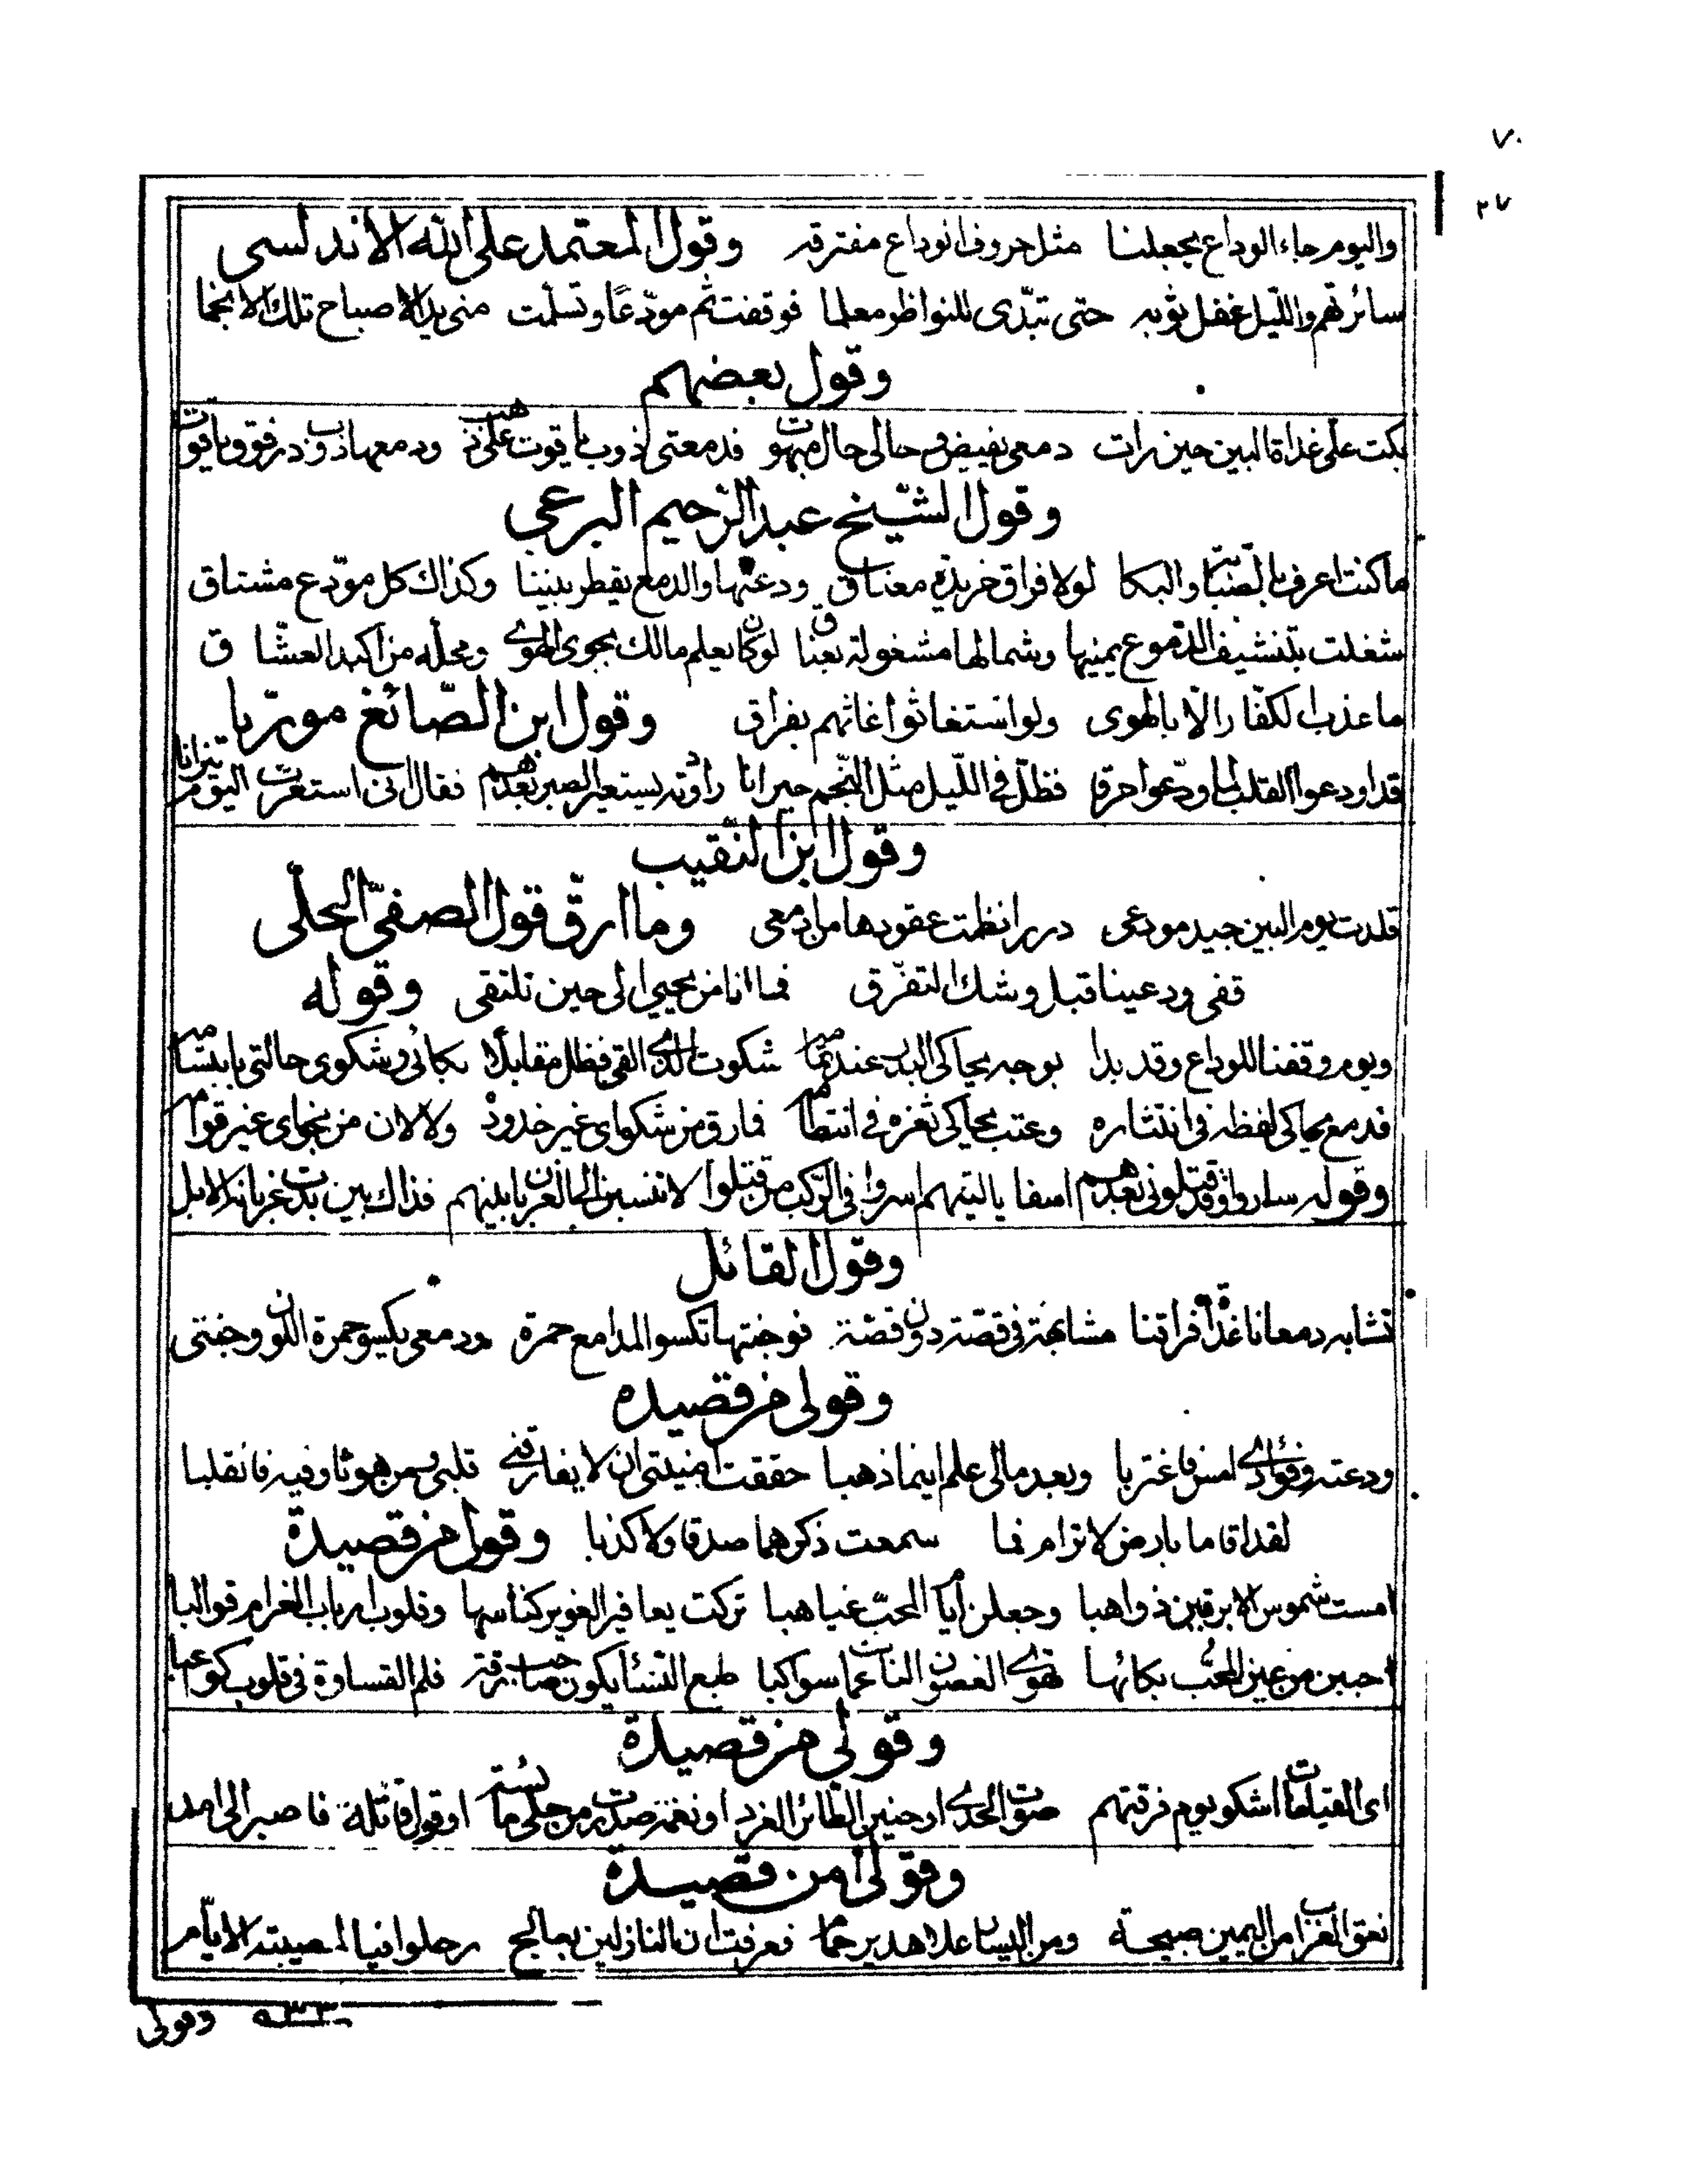 ٧٠
٢٧
واليوم جاء الوداع يجعلنا مثل حروف الوداع مفترقه وقول المعتمد على الله الاندلسى
سائرتهم والليل غفل ثوبه حتى تبدّى للنواظر معلما فوقفت ثم مودّعًا وتسلمت منى يد الاصباح تلك الانجما
وقول بعضهم
بكت على غداة البين حين رات دمعى يفيض وحالى حال مبهوت فدمعتى ذوب ياقوت على ذهب ودمعها ذوب در فوق ياقوت
وقول الشيخ عبد الرحيم البرعى
ما كنت اعرف بالصبابة والبكا لولا فراق خريدة معناق ودعتها والدمع يقطر بيننا وكذاك كل مودّع مشتاق
شغلت بتنشيف الدموع يمينها وشمالها مشغولة بعناق لو كان يعلم مالك بجوى الهوى ومحله من اكبد العشّاق
ما عذب الكفّار الّا بالهوى ولو استغاثوا غاثهم بفراق وقول ابن الصّائغ مورّيا
قد اودعوا القلب لما ودّعوا حرقا فظلّ فى اللّيل مثل النّجم حيرانا راودته يستعير الصبر بعدهم فقال انى استعرت اليوم نيرانا
وقول ابن النقيب
قلدت يوم البين جيد مودعى دررا نظمت عقودها من ادمعى وما ارقّ قول الصفىّ الحلّى
قفى ودعينا قبل وشك التفرّق فما انا من يحيى الى حين نلتقى وقوله
ويوم وقفنا للوداع وقد بدا بوجه يحاكى البدر عند تمامه شكوت الذى القى فظل مقابلا بكائى وشكوى حالتى بابتسامه
فدمع يحاكى لفظه فى انتثاره وعتب يحاكى ثغره فى انتظامه فما رق من شكواى غير خدوده ولا لان من نجواى غير قوامه
وقوله ساروا وقد قتلونى بعدهم اسفا يا ليتهم اسروا فى الركب من قتلوا لا تنسبن الى الغربان بينهم فذاك بين بدت غربانه الابل
وقول القائل
تشابه دمعانا غداة فراقنا مشابهة فى قصّة دون قصّة فوجنتها تكسو المدامع حمرة ودمعى يكسو حمرة اللون وجنتى
وقولى من قصيده
ودعته وفؤادى امس فاغتربا وبعد مالى علم اينما ذهبا حققت امنيتى ان لا يفارقنى قلبى ومن هو ثاو فيه فانقلبا
لقد اقاما بارض لا ترام فما سمعت ذكرهما صدقا ولا كذبا وقولى من قصيدة
امست شموس الابرقين ذواهبا وجعلن ايام المحب غياهبا تركت يعافير الغوير كناسها وقلوب ارباب الغرام قوالبا
احببن من عين المحّب بكائها تهوى الغصون النابتات غماما سواكبا طبع النساء يكون صاحب رقة فلم القساوة فى قلوب كواعبا
وقولى من قصيدة
اى القيامات اشكو يوم فرقتهم صوت الحدى او حنين الطائر الغرد او نغمة صدرت من حلى ما او قول قائلة فاصبر الى امد
وقولى من قصيدة
نعق الغراب من اليمين صبيحة ومن اليسار علا هدير حمام فعرفت ان النازلين بعالج رحلوا فيا لمصيبة الايّام
وقولى